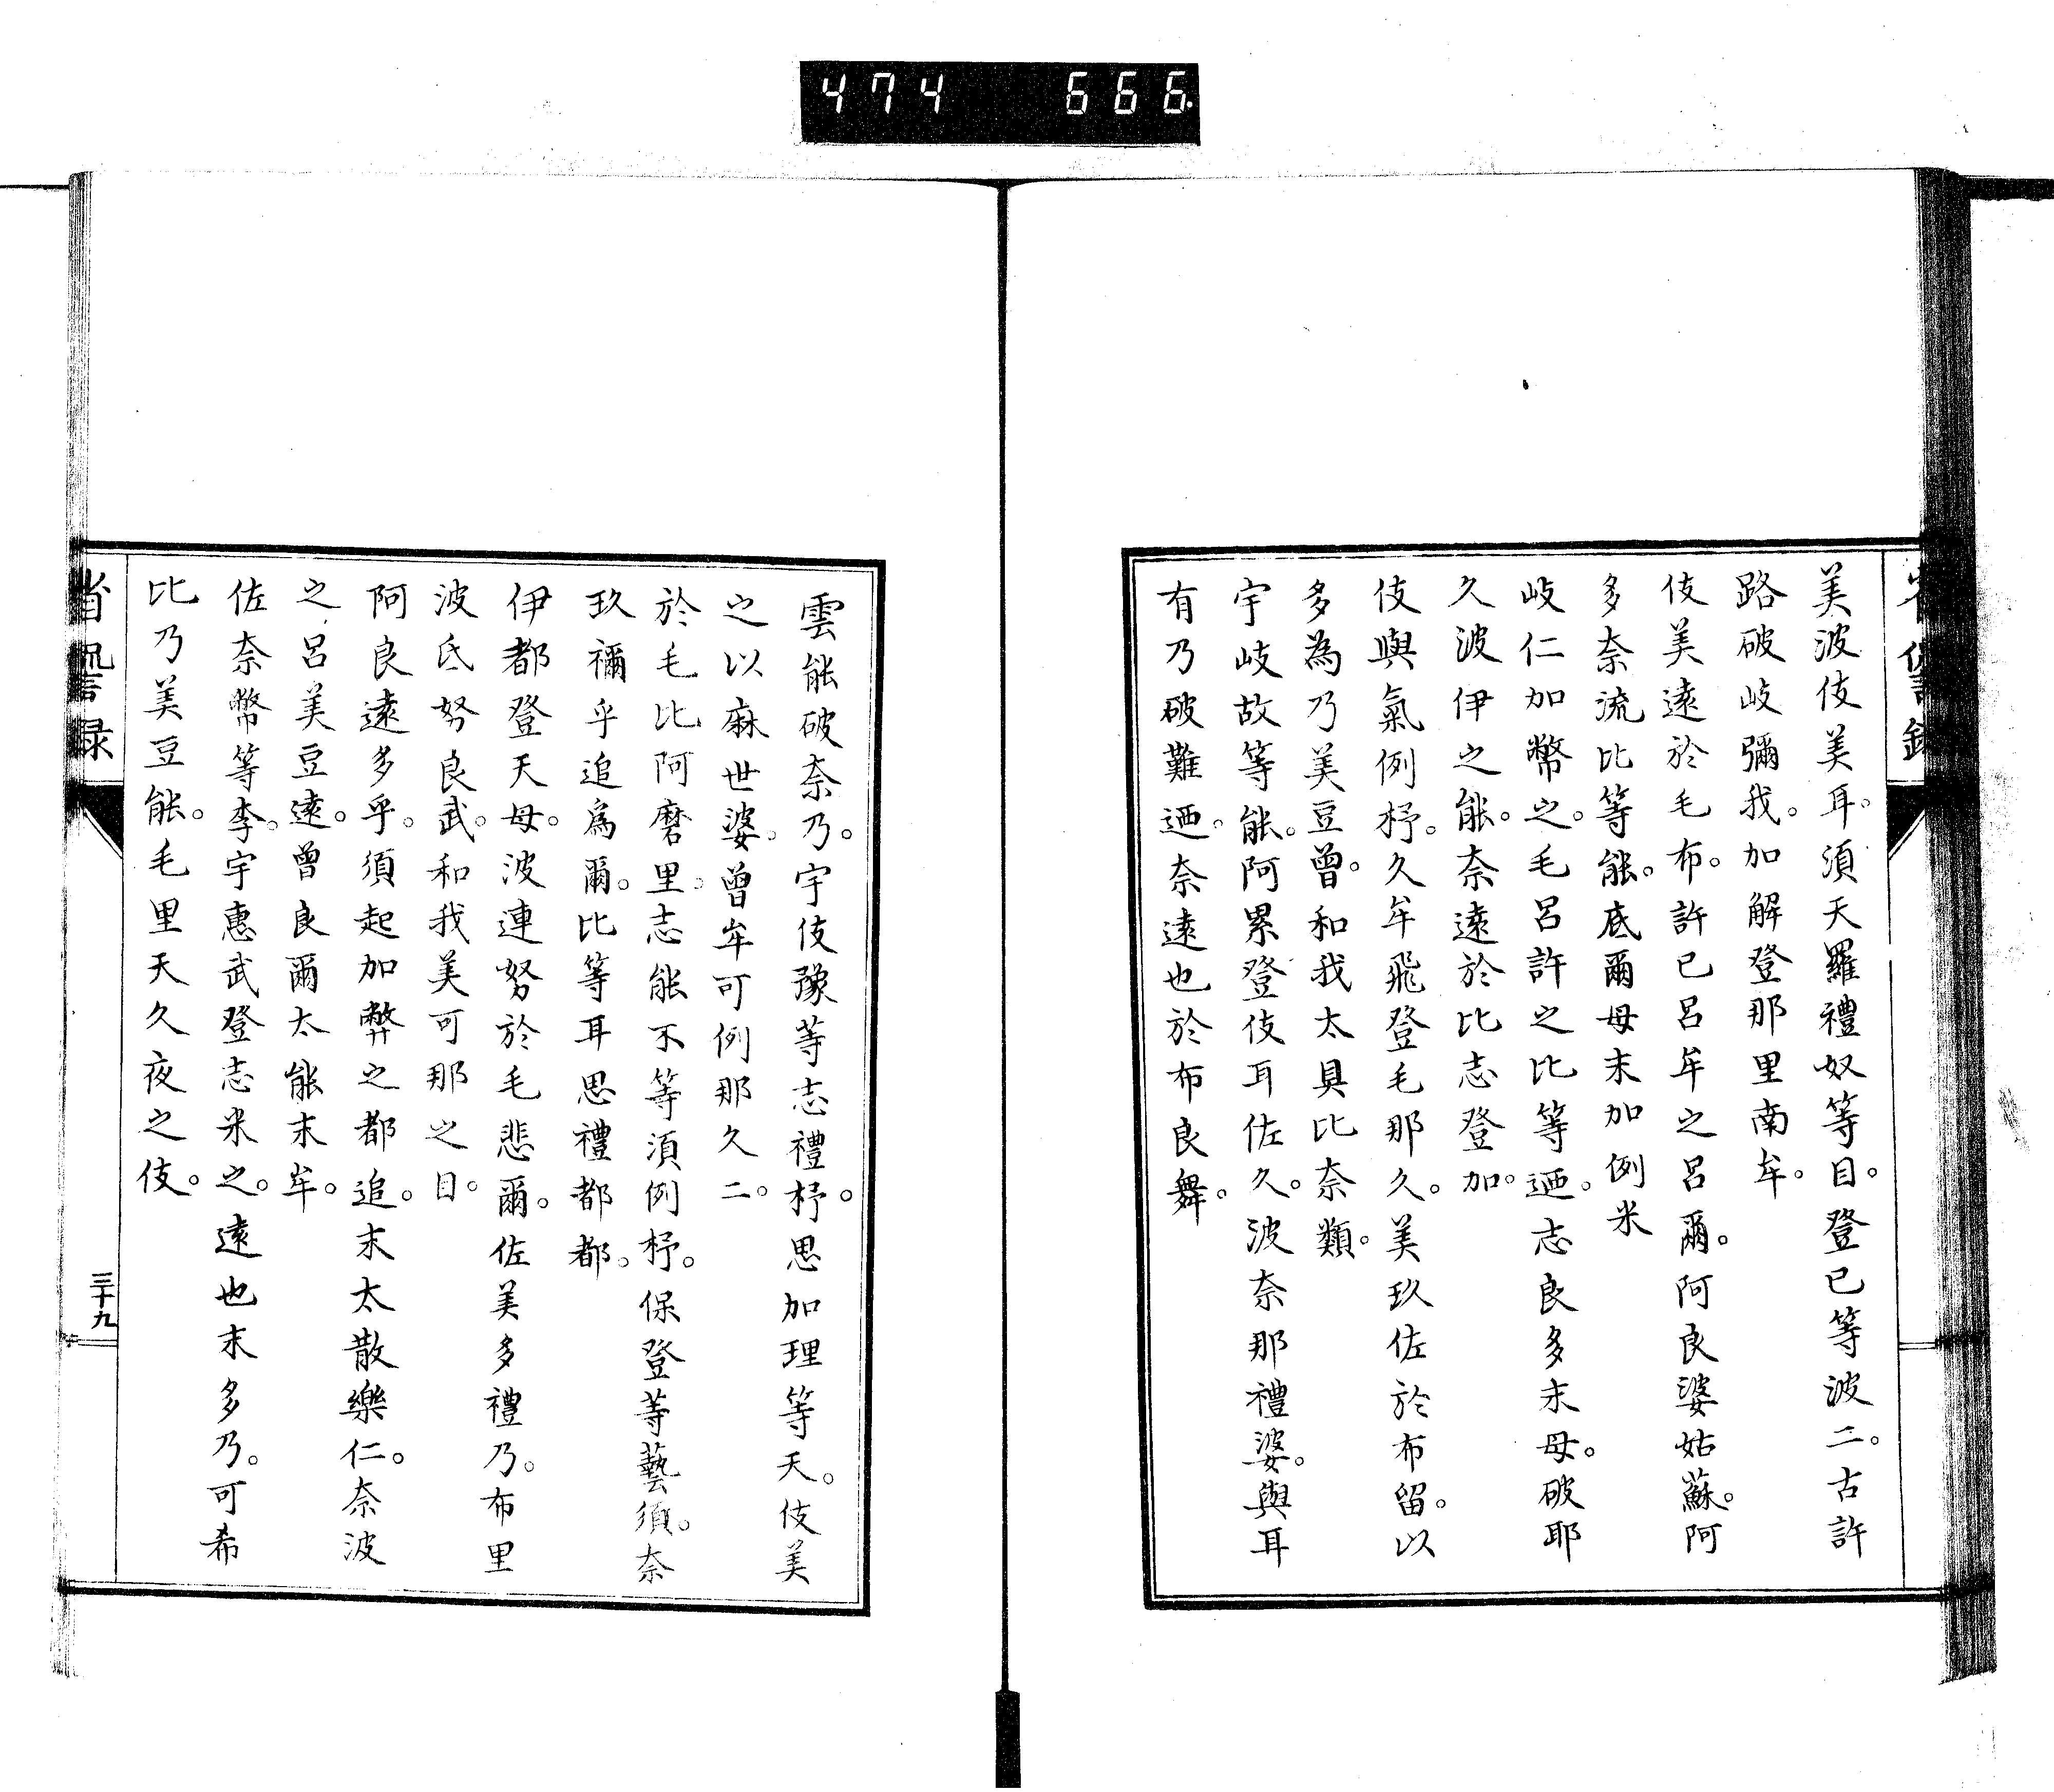 474 666.
美波伎美耳。須天羅禮奴等目。登已等波二。古許
路破岐彌我。加解登那里南牟。
伎美遠於毛布。許已呂牟之呂爾。阿良婆姑蘇。阿
多奈流比等能。底爾母末加例米
岐仁加幣之。毛呂許之比等迺。志良多末母。破耶
久波伊之能。奈遠於比志登加。
伎與氣例杼。久牟飛登毛那久。美玖佐於布留。以
多為乃美豆曾。和我太具比奈類。
宇岐故等能。阿累登伎耳佐久。波奈那禮婆。與耳
有乃破難迺。奈遠也於布良舞。
雲能破奈乃。宇伎豫等志禮杼。思加理等天。伎美
之以麻世婆。曾牟可例那久二。
於毛比阿磨里。志能不等須例杼。保登等藝須。奈
玖禰乎追爲爾。比等耳思禮都都。
伊都登天母。波連努於毛悲爾。佐美多禮乃。布里
波氐努良武。和我美可那之目。
阿良遠多乎。須起加弊之都追。末太散樂仁。奈波
之呂美豆遠。曾良爾太能末牟。
佐奈幣等李。宇惠武登志米之。遠也末多乃。可希
比乃美豆能。毛里天久夜之伎。
省諐言録
三十九